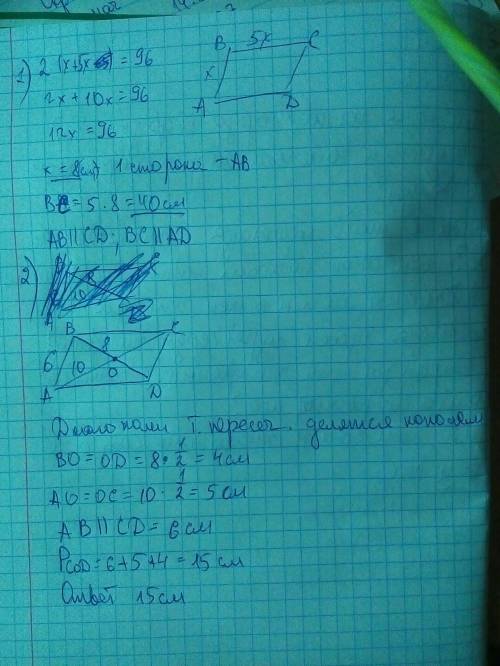 1) 2 (x+5x) = 96
B 5x C
2x + 10x = 96
x
A D
12x = 96
x = 8 см) 1 сторона - AB
BC = 5 · 8 = 40 см
AB || CD ; BC || AD
2)
B C
8
6 10 O
A D
Диагонали т. пересеч. делятся пополам
BO = OD = 8 · 1/2 = 4 см
AO = OC = 10 · 1/2 = 5 см
AB || CD = 6 см
PCOD = 6 + 5 + 4 = 15 см
Ответ 15 см